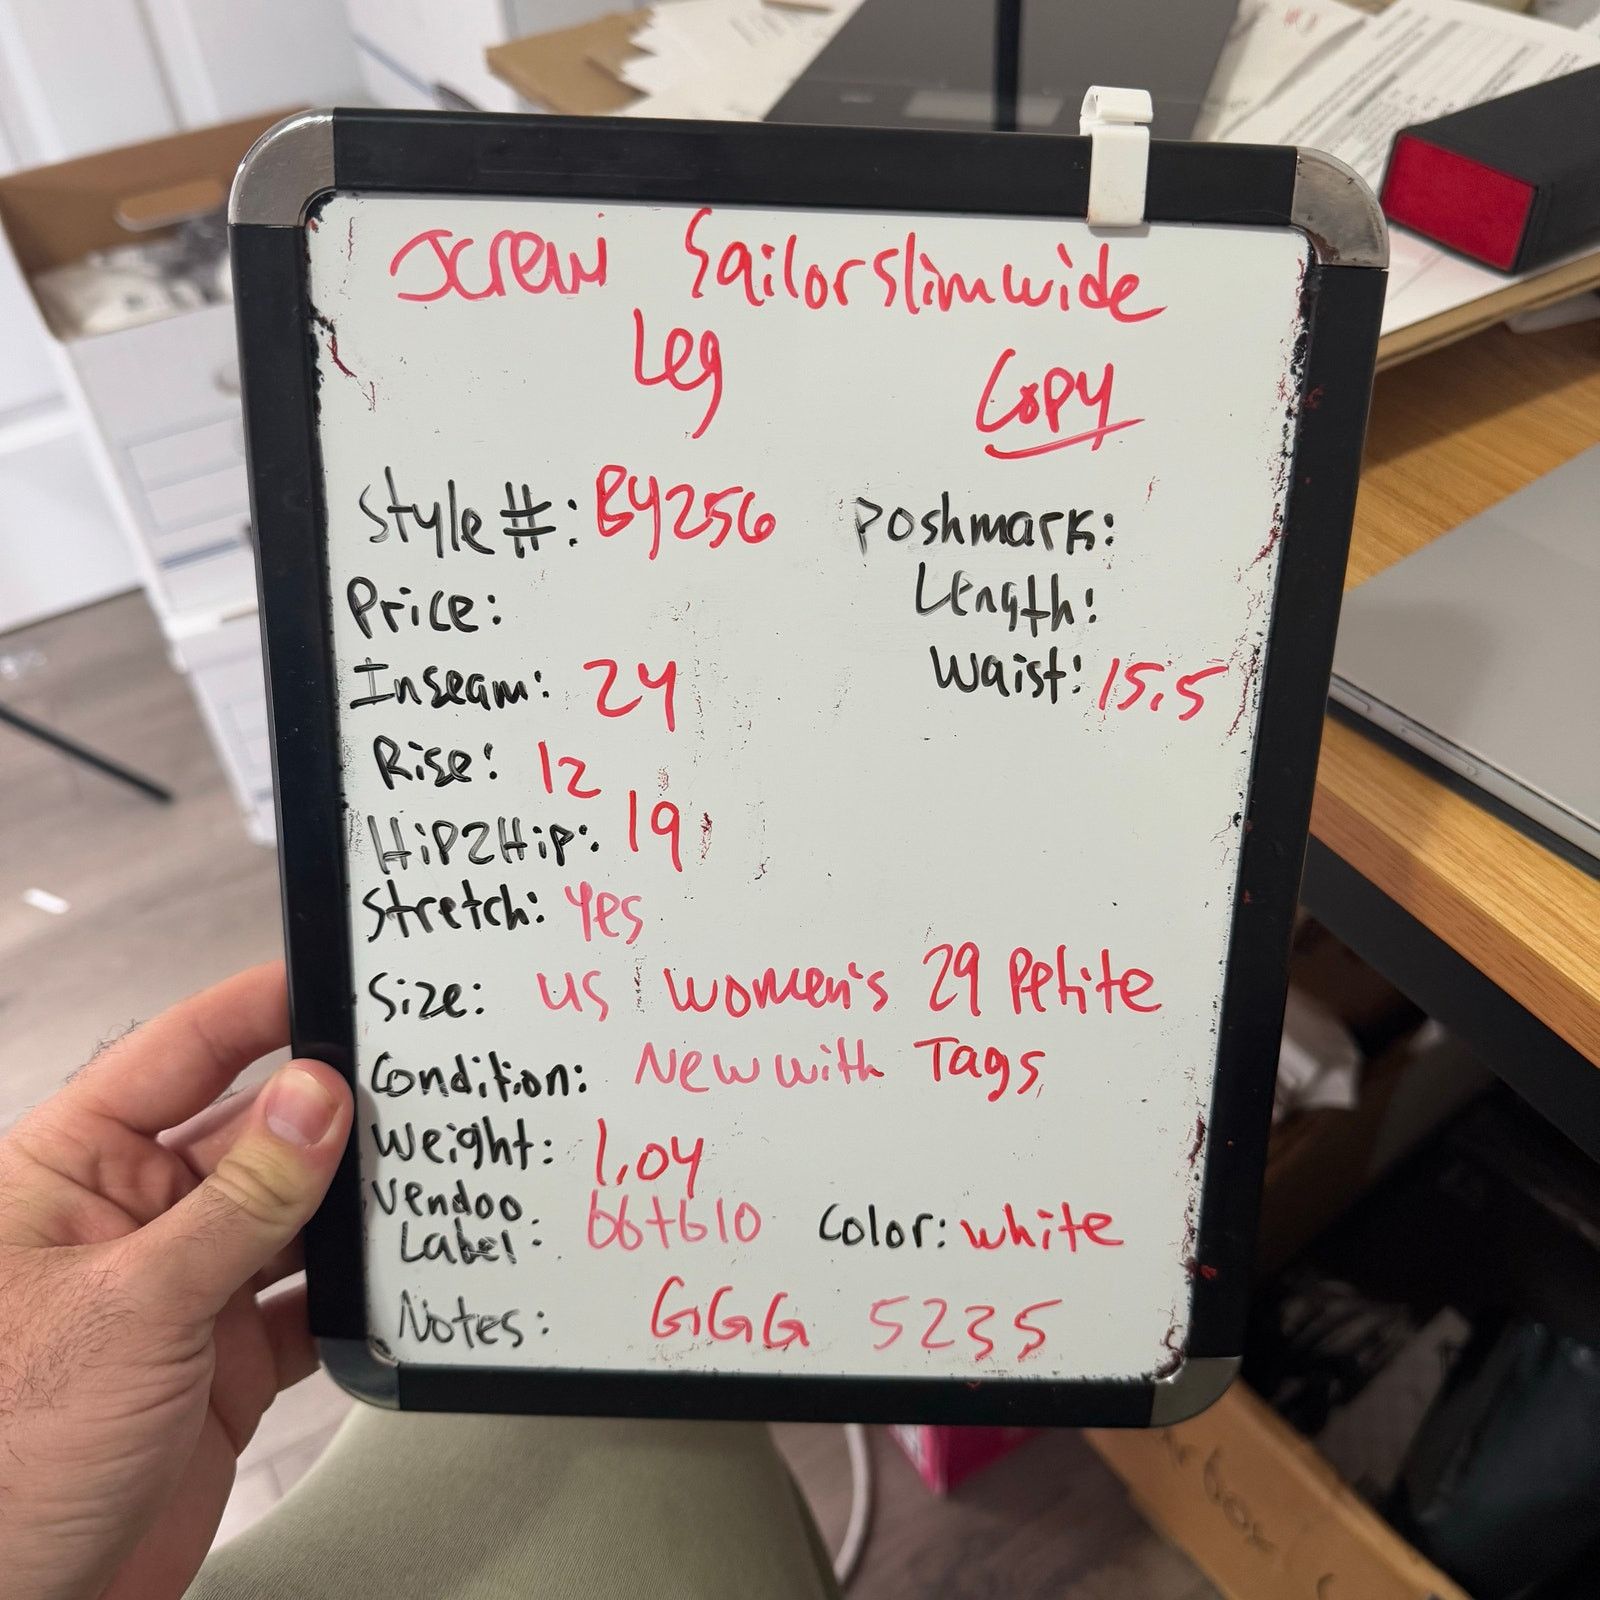 Jcrew Sailor Slim wide
Leg
Copy
Style #: BY256
Poshmark:
Price:
Length:
Inseam: 24
Waist: 15.5
Rise: 12
Hip2Hip: 19
Stretch: Yes
Size: US Women's 29 Petite
Condition: New with Tags
Weight: 1.04
Vendoo
Label: bb+b10
Color: white
Notes: GGG 5235